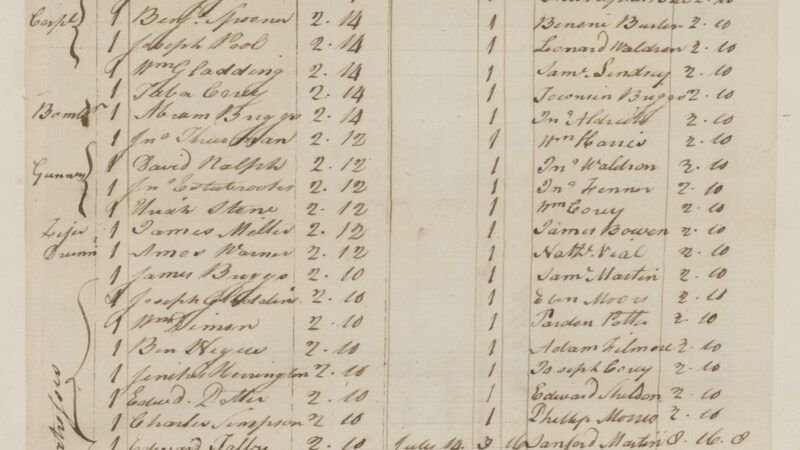 Corpl 1 Benj. Spooner 2. 14
1 Joseph Pool 2. 14
1 Wm Gladding 2. 14
1 Taba Corey 2. 14
Bombr 1 Abram Briggs 2. 14
1 Jno Thurman 2. 12
Gunner 1 David Ralph 2. 12
1 Jno Estabrooks 2. 12
1 Uriah Stone 2. 12
Fifer 1 James Miller 2. 12
Drumr 1 Amos Warner 2. 12
1 James Briggs 2. 10
1 Joseph 2. 10
1 Wm Dimon 2. 10
1 Ben Negus 2. 10
1 Herrington 2. 10
1 Edwd. Potter 2. 10
1 Charles Simpson 2 10
1 Edward 2. 10
1 Benoni 2. 10
1 Leonard Waldron 2. 10
1 Saml. Lindsey 2. 10
1 Townsin Briggs 2. 10
1 Jno Aldrich 2. 10
1 Wm Harris 2. 10
1 Jno Waldron 2. 10
1 Jno Fenner 2. 10
1 Wm Corey 2. 10
1 James Bowen 2. 10
1 Nathl. Vial 2. 10
1 Saml. Martin 2. 10
1 Eben Moors 2. 10
1 Pardon Potter 2. 10
1 Adam Filmore 2. 10
1 Joseph Corey 2. 10
1 Edward Sheldon 2. 10
1 Phillip Morris 2. 10
July 14. 3 16 Sanford Martin 8. 16. 8